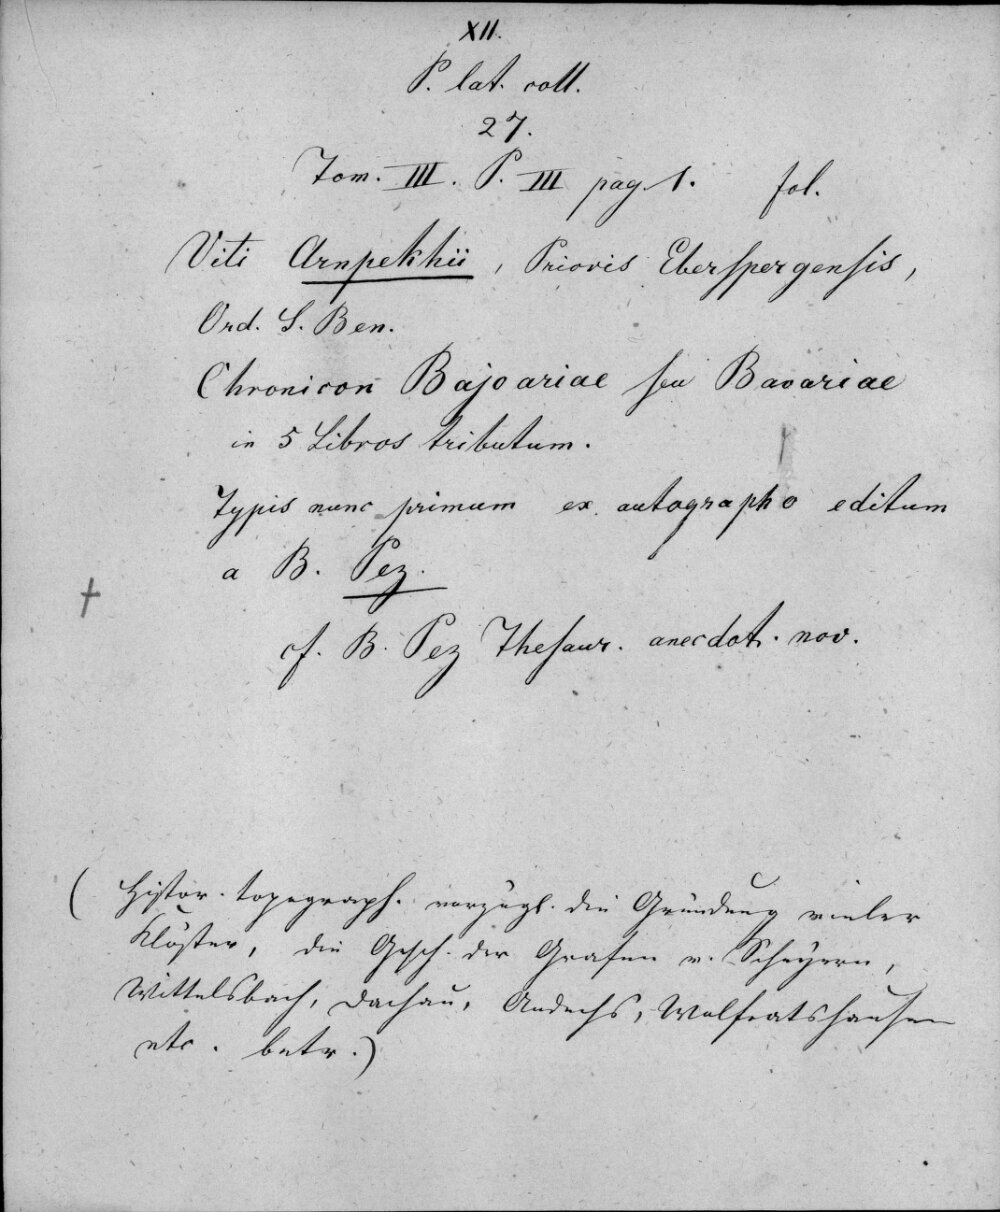 XII.
P. lat. coll.
27.
Tom. III. P. III pag. 1. fol.
Viti Arnpekhii, Prioris Eberspergensis,
Ord. S. Ben.
Chronicon Bajoariae seu Bavariae
in 5 Libros tributum.
Typis nunc primum ex autographo editum
a B. Pez.
cf. B. Pez Thesaur. anecdot. nov.
(Histor. topograph. vorzügl. die Gründung vieler
Klöster, die Gesch. der Grafen v. Scheyern,
Wittelsbach, Dachau, Andechs, Wolfratshausen
etc. betr.)